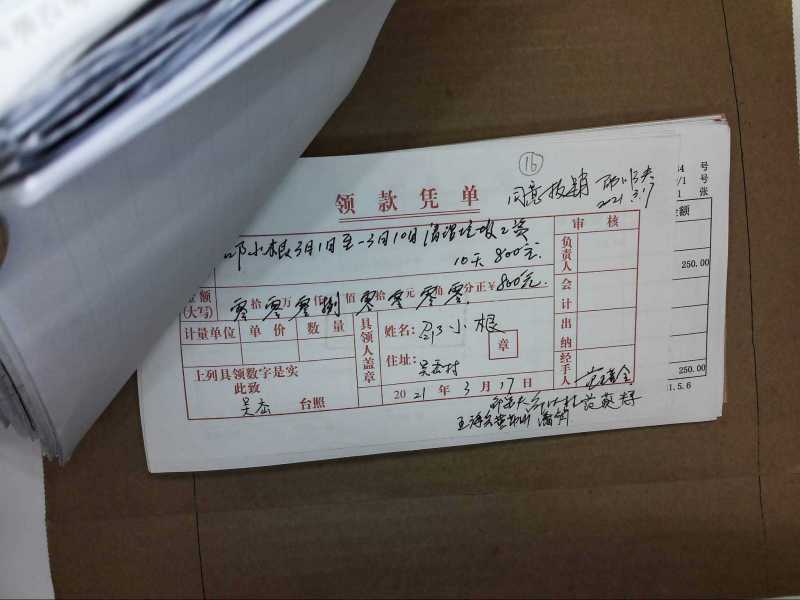 16
领款凭单
同意报销
2021.3.17
邓小根3月1日至3月10日清理垃圾工资
10天 800元.
金额(大写) 零拾零万零仟捌佰零拾零元零角零分正¥800元.
计量单位 单价 数量
上列具领数字是实
此致
台照
具领人盖章
姓名: 邓小根
住址: 吴岙村
章
2021年3月17日
审核
负责人
会计
出纳
经手人
号
/1 号
1 张
金额
250.00
250.00
1.5.6